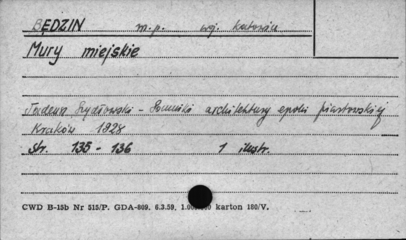 BĘDZIN m.p. woj. katowice
Mury miejskie
Tadeusz Szydłowski - Pomniki architektury epoki piastowskiej
Kraków 1928
str. 135 - 136 1 ilustr.
CWD B-15b Nr 515/P. GDA-809. 6.3.59. karton 180/V.